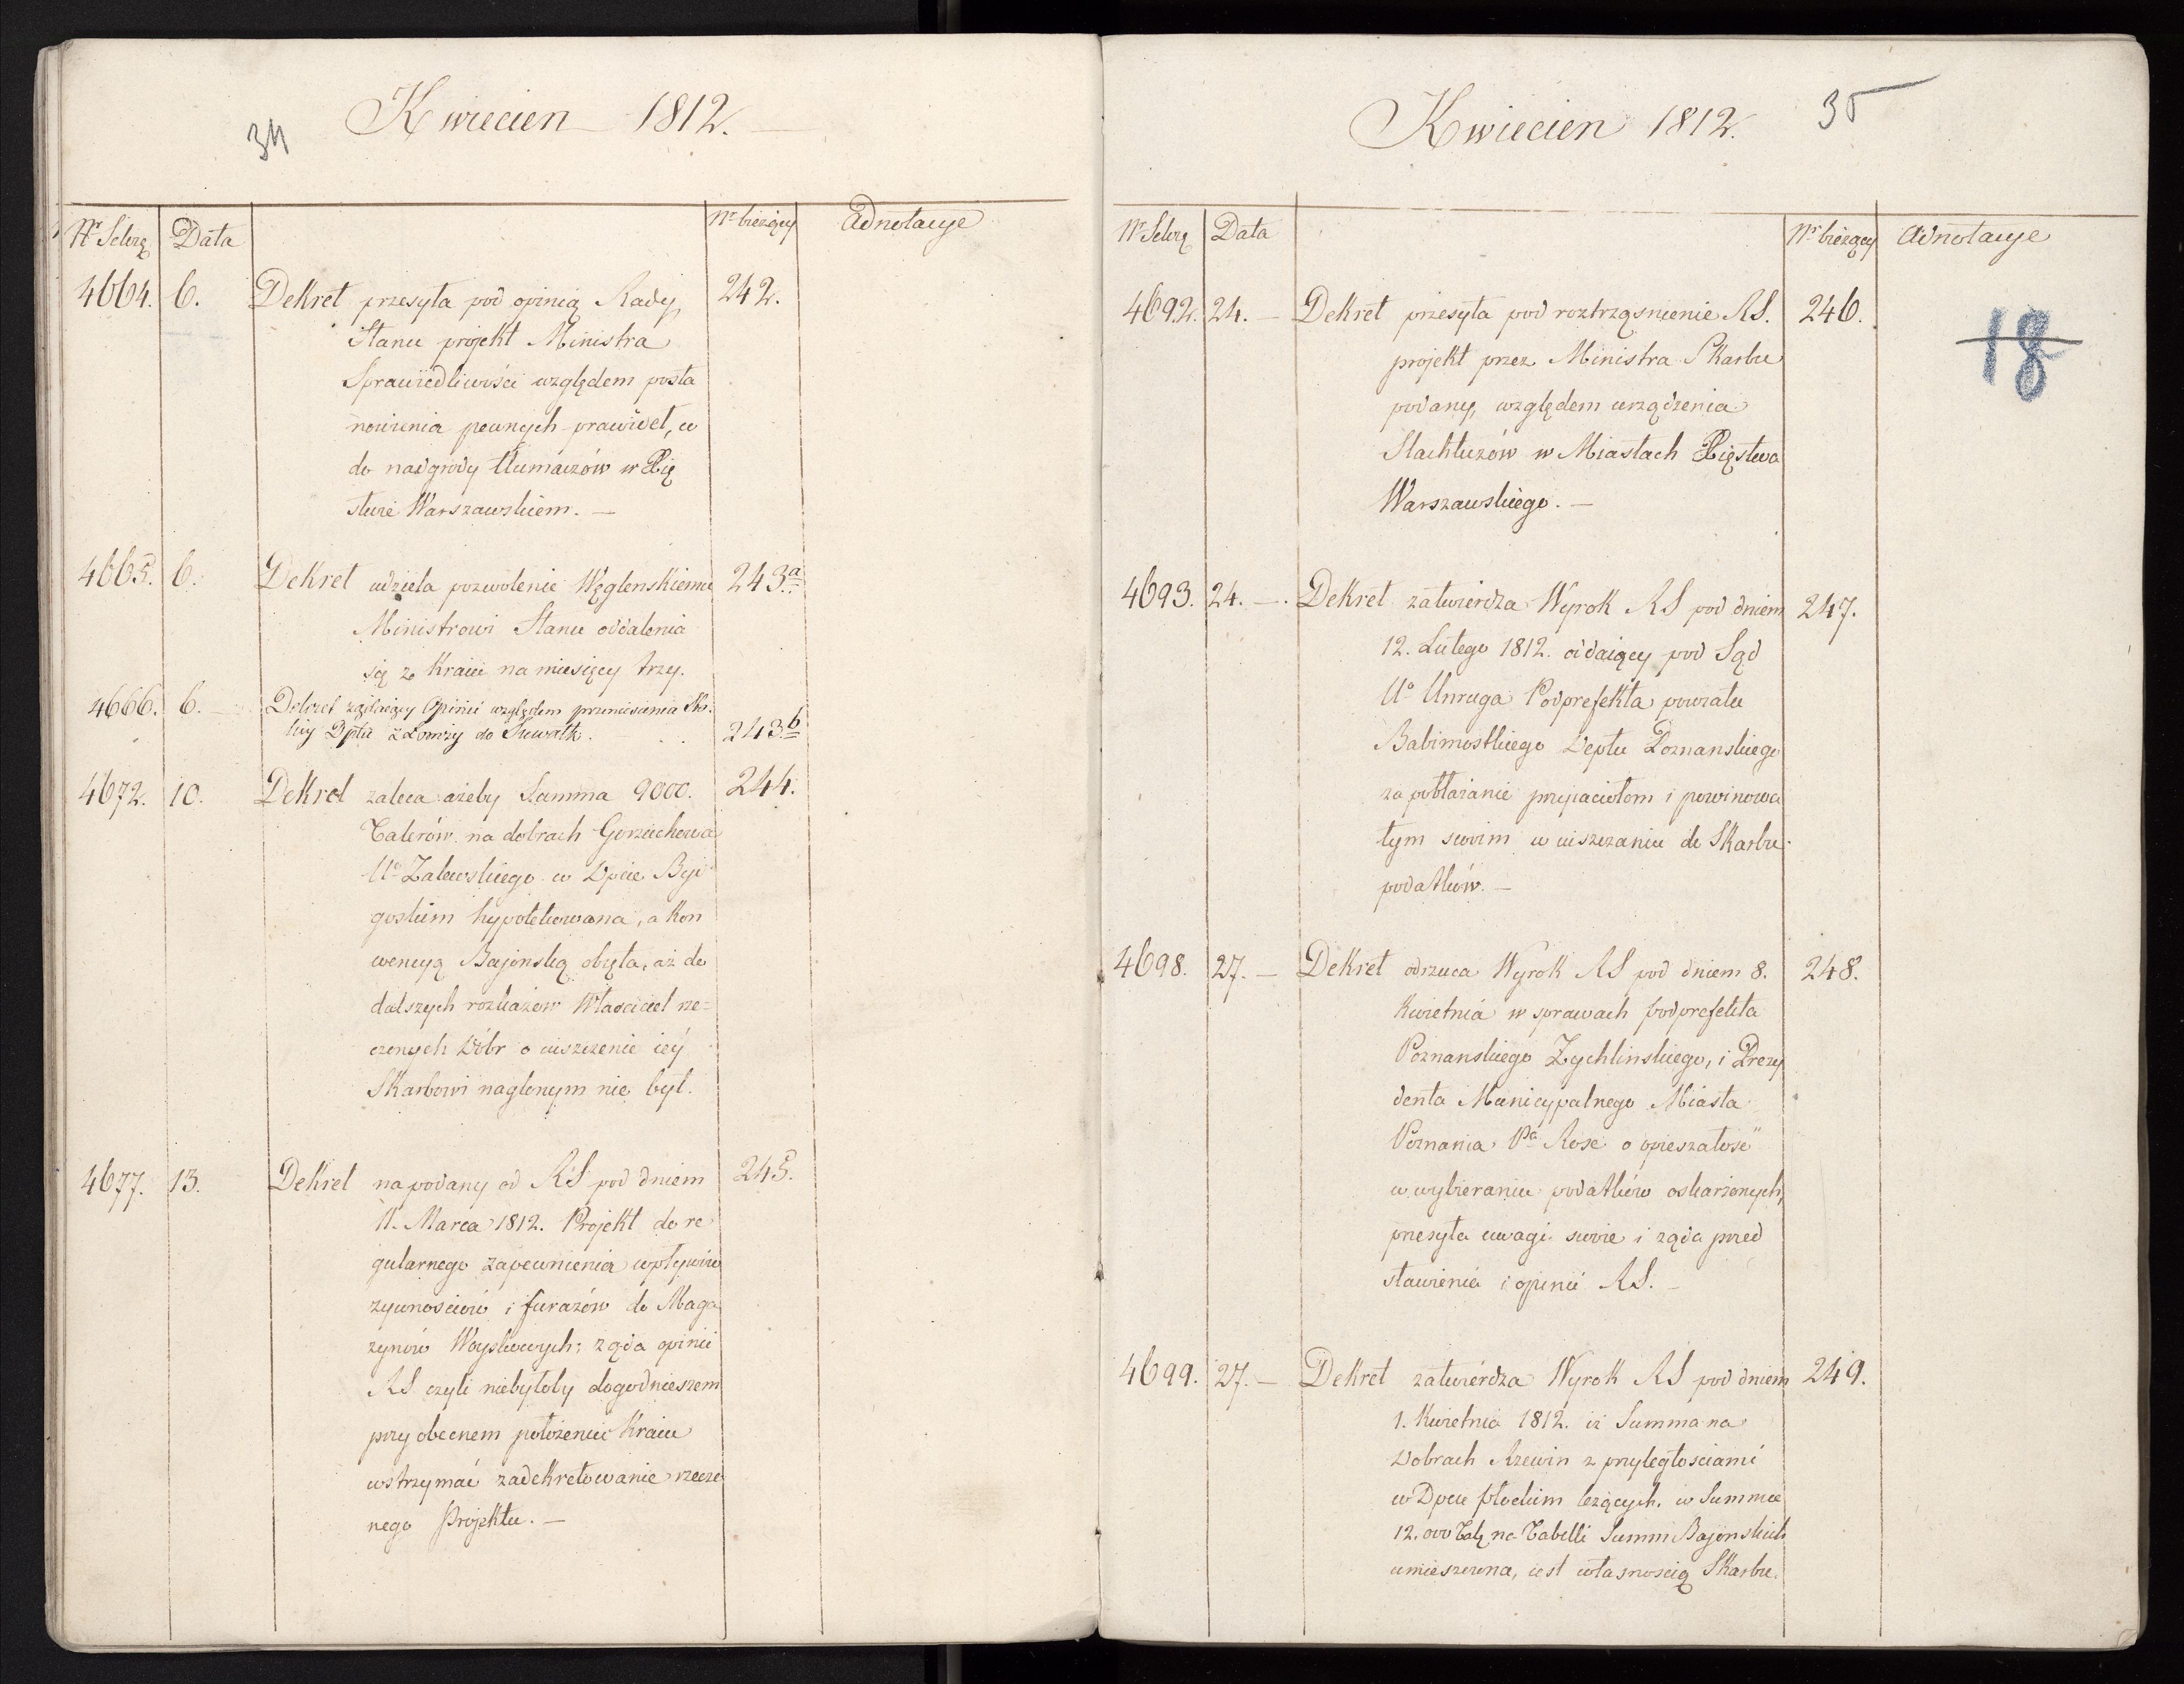 34
Kwiecien 1812.
Nr Sekrę Data Nr bieżący Adnotacye
4664. 6. Dekret przesyła pod opinią Rady 242.
Stanu projekt Ministra
Sprawiedliwości względem posta
nowienia pewnych prawideł, co
do nadgrody tłumaczów w Xię
stwie Warszawskiem. —
4665. 6. Dekret udziela pozwolenie Węglenskiemu 243.a
Ministrowi Stanu oddalenia
się z Kraiu na miesięcy trzy.
4666. 6. Dekret żądaiący Opinii względem przeniesienia Sto-
licy Dptu z Łomży do Suwałk. 243.b
4672. 10. Dekret zaleca ażeby Summa 9000. 244.
Talerów na dobrach Gorzuchowa
Uo Zalewskiego w Dpcie Byd
goskim hypotekowana, a Kon
wencyą Bajonską objęta, aż do
dalszych rozkazów Właściciel rze-
czonych Dóbr o uiszczenie iéy
Skarbowi naglonym nie był.
4677. 13. Dekret na podany od RS pod dniem 245.
11. Marca 1812. Projekt do re
gularnego zapewnienia wpływów
żywnosciów i furazów do Maga
zynów Woyskowych; ząda opinii
RS. czyli niebyłoby dogodnieszem
przy obecnem położeniu Kraiu
wstrzymać zadekretowanie rzeczo
nego Projektu. —
35
Kwiecien 1812.
Nr Sekrę Data Nr bieżący Adnotacye
4692. 24. — Dekret przesyła pod roztrząsnienie RS. 246.
18
projekt przez Ministra Skarbu
podany, względem urządzenia
Szlachtuzów w Miastach Xięstwa
Warszawskiego. —
4693. 24. — Dekret zatwierdza Wyrok RS pod dniem 247.
12. Lutego 1812. oddaiący pod Sąd
Uo Unruga Podprefekta powiatu
Babimostkiego Deptu Poznanskiego
za pobłażanie przyiaciołom i powinowa
tym swoim w uiszczaniu do Skarbu
podatków. —
4698. 27. — Dekret odrzuca Wyrok RS pod dniem 8. 248.
Kwietnia w sprawach podprefekta
Poznanskiego Zychlinskiego, i Prezy
denta Municypalnego Miasta
Poznania Pa Rose o opieszałosć
w wybieraniu podatków oskarżonych,
przesyła uwagi swoie i ząda przed
stawienia i opinii RS. —
4699. 27. — Dekret zatwierdza Wyrok RS pod dniem 249.
1. Kwietnia 1812. iż Summa na
Dobrach Rzewin z przyległosciami
w Dpcie płockim leżących, w Summie
12.000 Tal. na Tabelli Summ Bajonskich
umieszczona, iest własnoscią Skarbu.